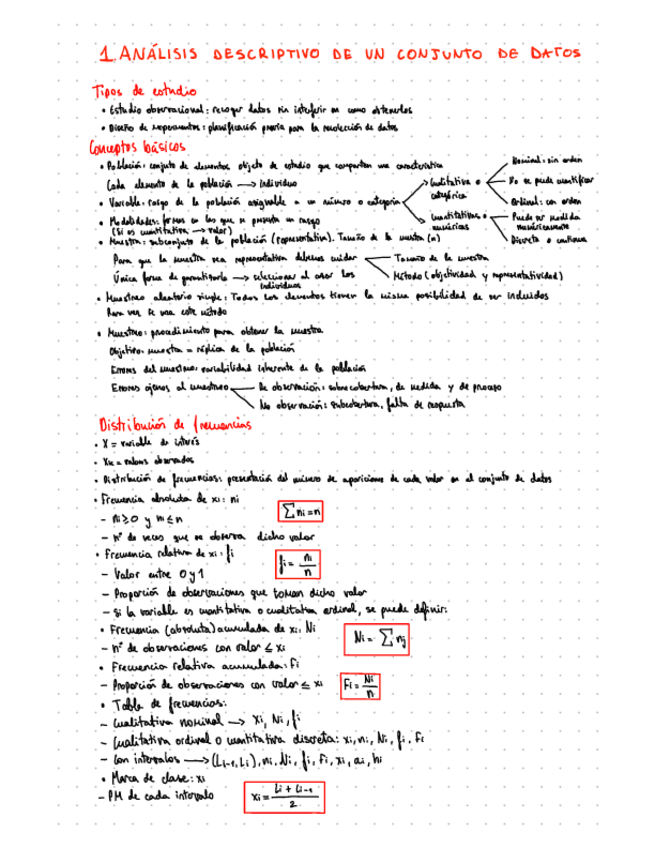 1. ANÁLISIS DESCRIPTIVO DE UN CONJUNTO DE DATOS
Tipos de estudio
• Estudio observacional: recoger datos sin interferir en como obtenerlos
• Diseño de experimentos: planificación previa para la recolección de datos
Conceptos básicos
• Población: conjunto de elementos objeto de estudio que comparten una característica
Cada elemento de la población → Individuo
• Variable: rasgo de la población asignable a un número o categoría
Cualitativa o categórica
Nominal: sin orden
No se puede cuantificar
Ordinal: con orden
Cuantitativas o numéricas
Puede ser medida numéricamente
Discreta o continua
• Modalidades: formas en las que se presenta un rasgo
(si es cuantitativa → valor)
• Muestra: subconjunto de la población (representativa). Tamaño de la muestra (n)
Para que la muestra sea representativa debemos cuidar
Tamaño de la muestra
Método (objetividad y representatividad)
Única forma de garantizarlo → seleccionar al azar los individuos
• Muestreo aleatorio simple: Todos los elementos tienen la misma posibilidad de ser incluidos
Rara vez se usa este método
• Muestreo: procedimiento para obtener la muestra
Objetivo: muestra = réplica de la población
Errores del muestreo: variabilidad inherente de la población
Errores ajenos al muestreo
De observación: sobrecobertura, de medida y de proceso
No observación: subcobertura, falta de respuesta
Distribución de frecuencias
• X = variable de interés
• Xk = valores observados
• Distribución de frecuencias: presentación del número de apariciones de cada valor en el conjunto de datos
• Frecuencia absoluta de xi: ni
- ni ≥ 0 y ni ≤ n
∑ni = n
- nº de veces que se observa dicho valor
• Frecuencia relativa de xi: fi
fi = ni/n
- Valor entre 0 y 1
- Proporción de observaciones que toman dicho valor
- Si la variable es cuantitativa o cualitativa ordinal, se puede definir:
• Frecuencia (absoluta) acumulada de xi: Ni
Ni = ∑ nj
- nº de observaciones con valor ≤ xi
• Frecuencia relativa acumulada: Fi
- Proporción de observaciones con valor ≤ xi
Fi = Ni/n
• Tabla de frecuencias:
- Cualitativa nominal → xi, Ni, fi
- Cualitativa ordinal o cuantitativa discreta: xi, ni, Ni, fi, Fi
- Con intervalos → (Li-1, Li), ni, Ni, fi, Fi, xi, ai, hi
• Marca de clase: xi
- PM de cada intervalo
xi = Li + Li-1 / 2